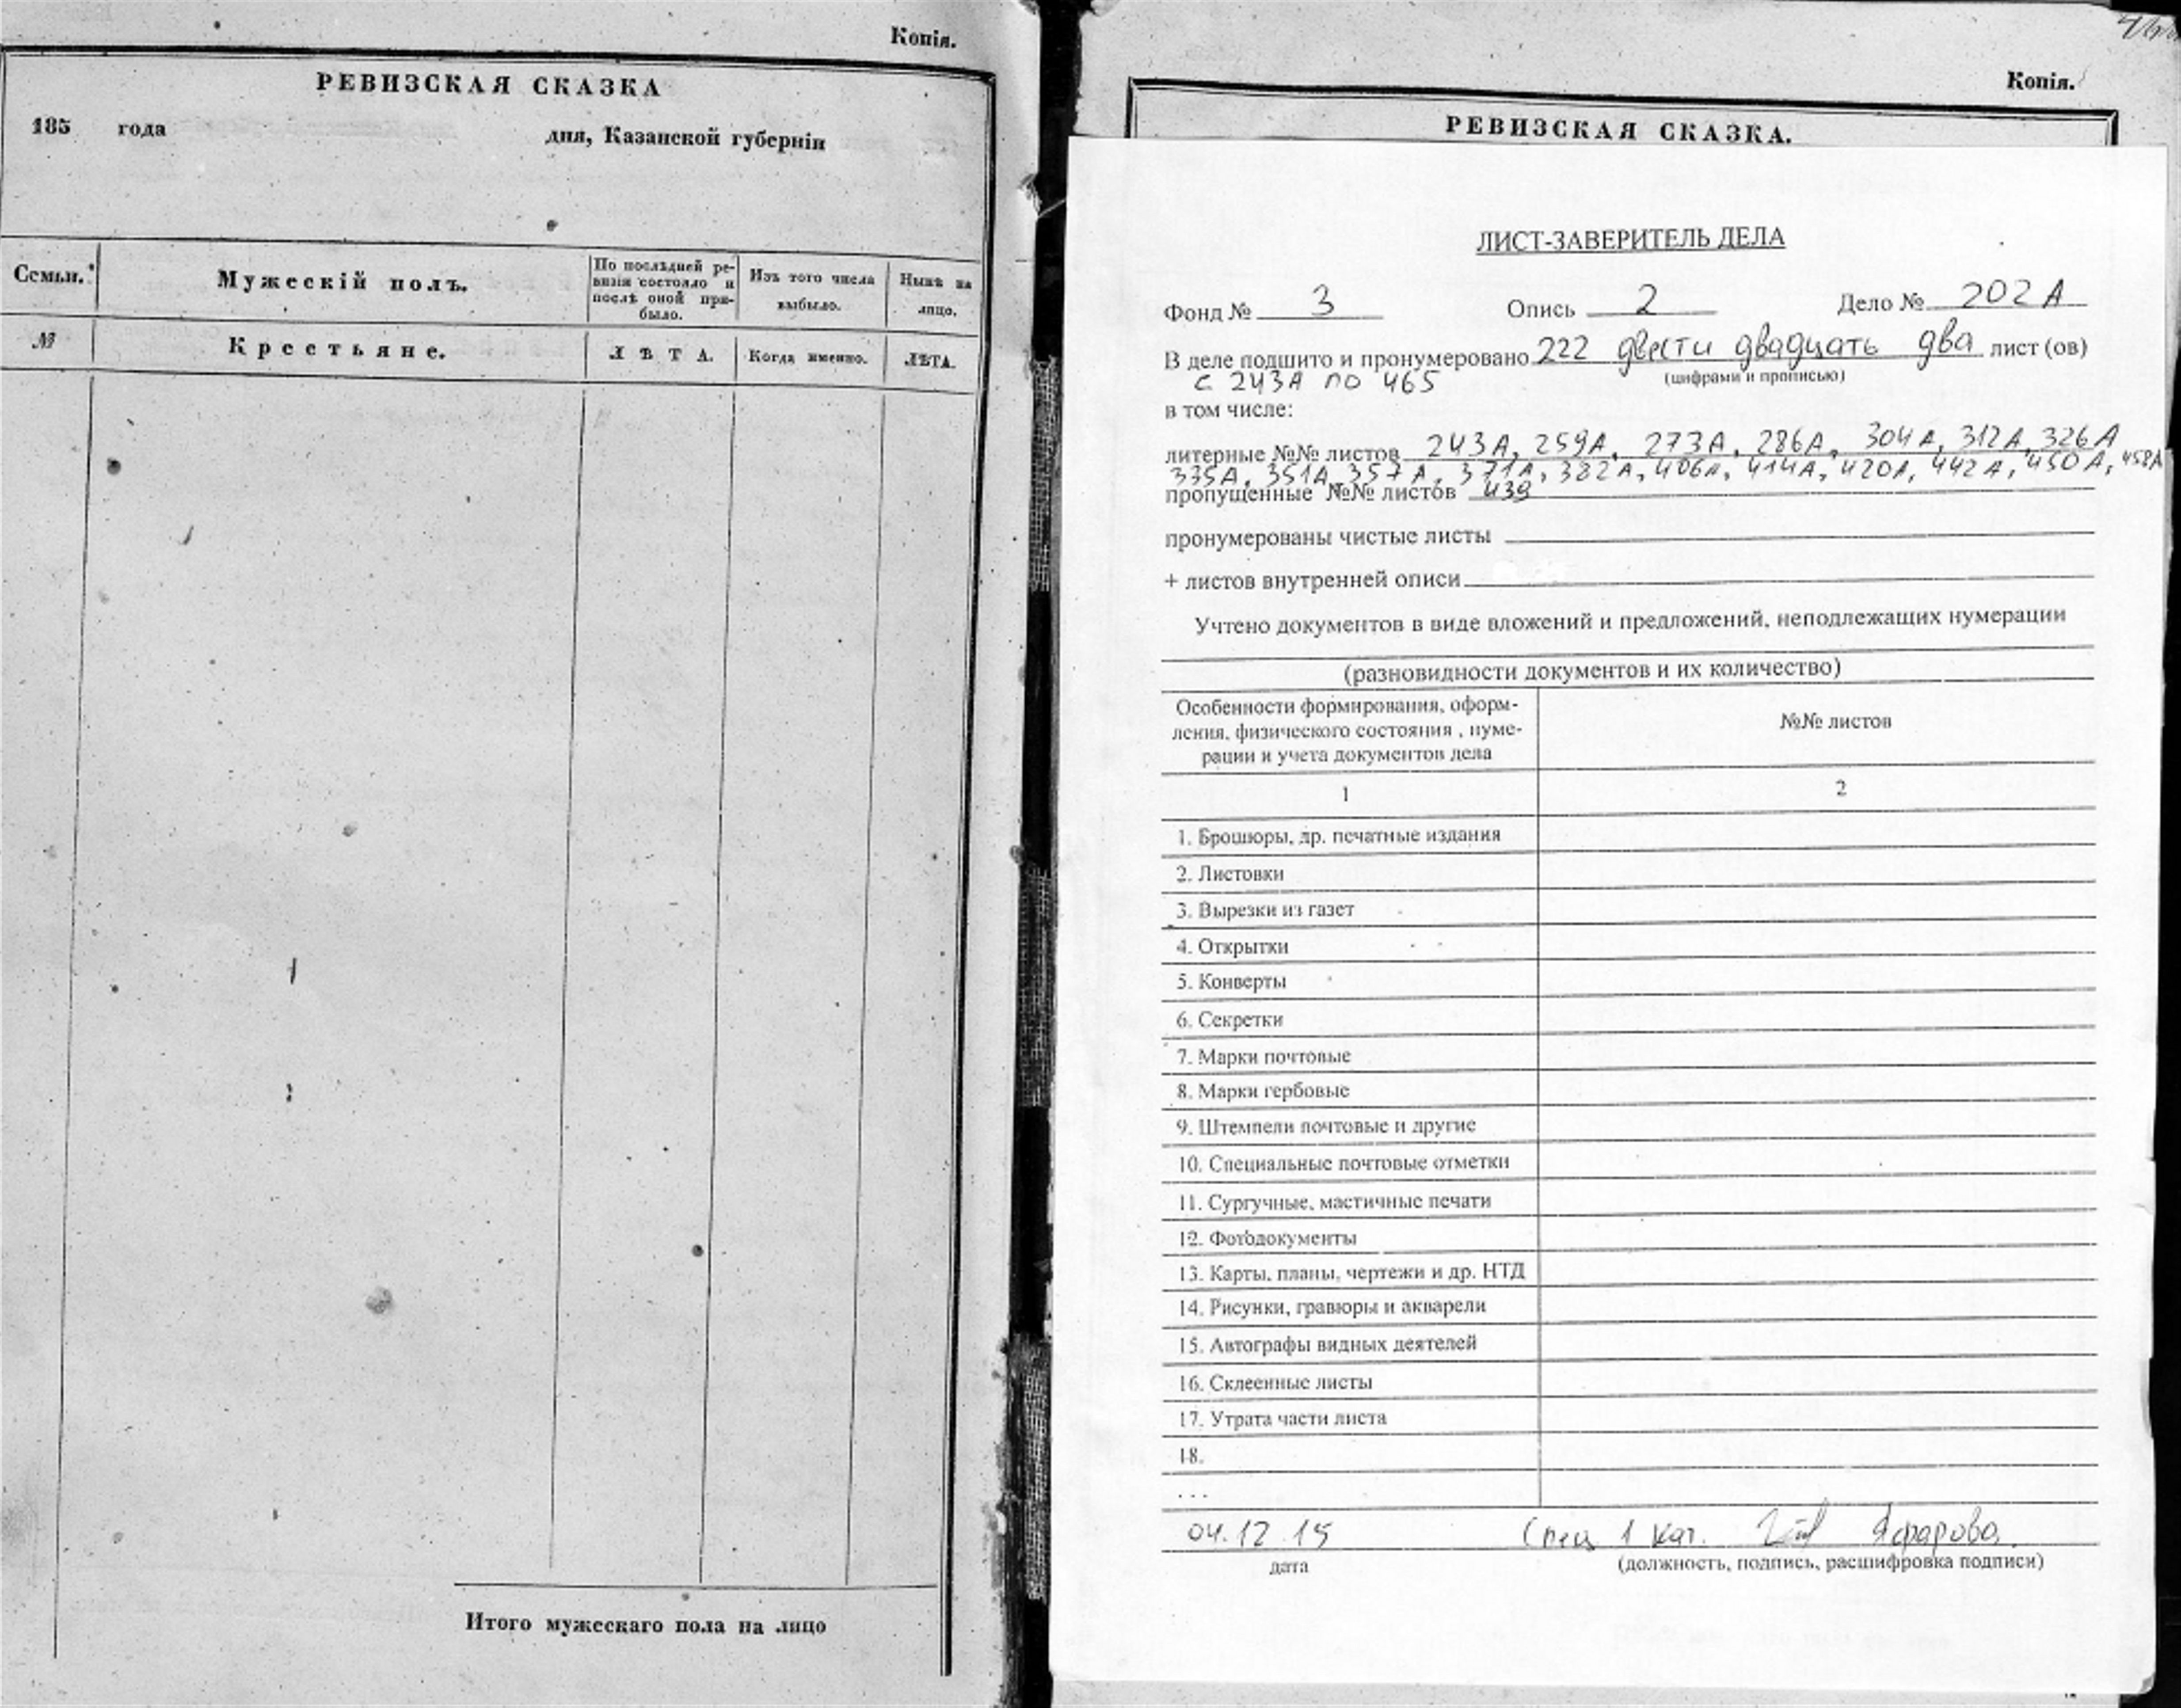 Копія.
РЕВИЗСКАЯ СКАЗКА
185 года дня, Казанской губерніи
Семьи.
Мужескій полъ.
По послѣдней ре-
визіи состояло и
послѣ оной при-
было.
Изъ того числа
выбыло.
Нынѣ на
лицо.
№
Крестьяне.
ЛѢТА.
Когда именно.
ЛѢТА.
Итого мужескаго пола на лицо
Копія.
РЕВИЗСКАЯ СКАЗКА.
ЛИСТ-ЗАВЕРИТЕЛЬ ДЕЛА
Фонд № 3 Опись 2 Дело № 202 А
В деле подшито и пронумеровано 222 двести двадцать два лист (ов)
(цифрами и прописью)
с 243А по 465
в том числе:
литерные №№ листов 243А, 259А, 273А, 286А, 304А, 312А, 326А
335А, 351А, 357А, 371А, 382А, 406А, 414А, 420А, 442А, 450А, 458А
пропущенные №№ листов 439
пронумерованы чистые листы
+ листов внутренней описи
Учтено документов в виде вложений и предложений, неподлежащих нумерации
(разновидности документов и их количество)
Особенности формирования, оформ-
ления, физического состояния , нуме-
рации и учета документов дела
№№ листов
1 2
1. Брошюры, др. печатные издания
2. Листовки
3. Вырезки из газет
4. Открытки
5. Конверты
6. Секретки
7. Марки почтовые
8. Марки гербовые
9. Штемпели почтовые и другие
10. Специальные почтовые отметки
11. Сургучные, мастичные печати
12. Фотодокументы
13. Карты, планы, чертежи и др. НТД
14. Рисунки, гравюры и акварели
15. Автографы видных деятелей
16. Склеенные листы
17. Утрата части листа
18.
. . .
04.12.15 Спец 1 кат. Яфарова.
дата (должность, подпись, расшифровка подписи)